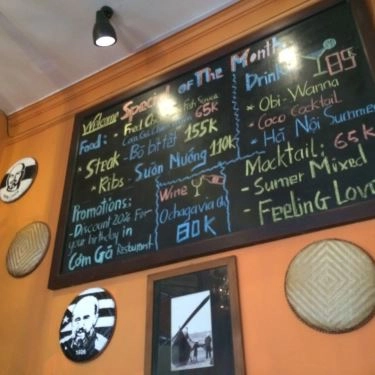 Welcome Special of The Month
Food:
Fried Chicken Fish Sauce
Cơm Gà Chiên 65K
- Steak - Bò bít tết 155K
* Ribs - Sườn Nướng 110K
Promotions:
- Discount 20% For
your birthday in
Cơm Gà Restaurant
Wine
Ochagavia đỏ
80K
Drink
89K
* Obi-Wanna
* Coco Cocktail
* Hà Nội Summer
Mocktail: 65K
- Sumer Mixed
- Feeling Love
1928